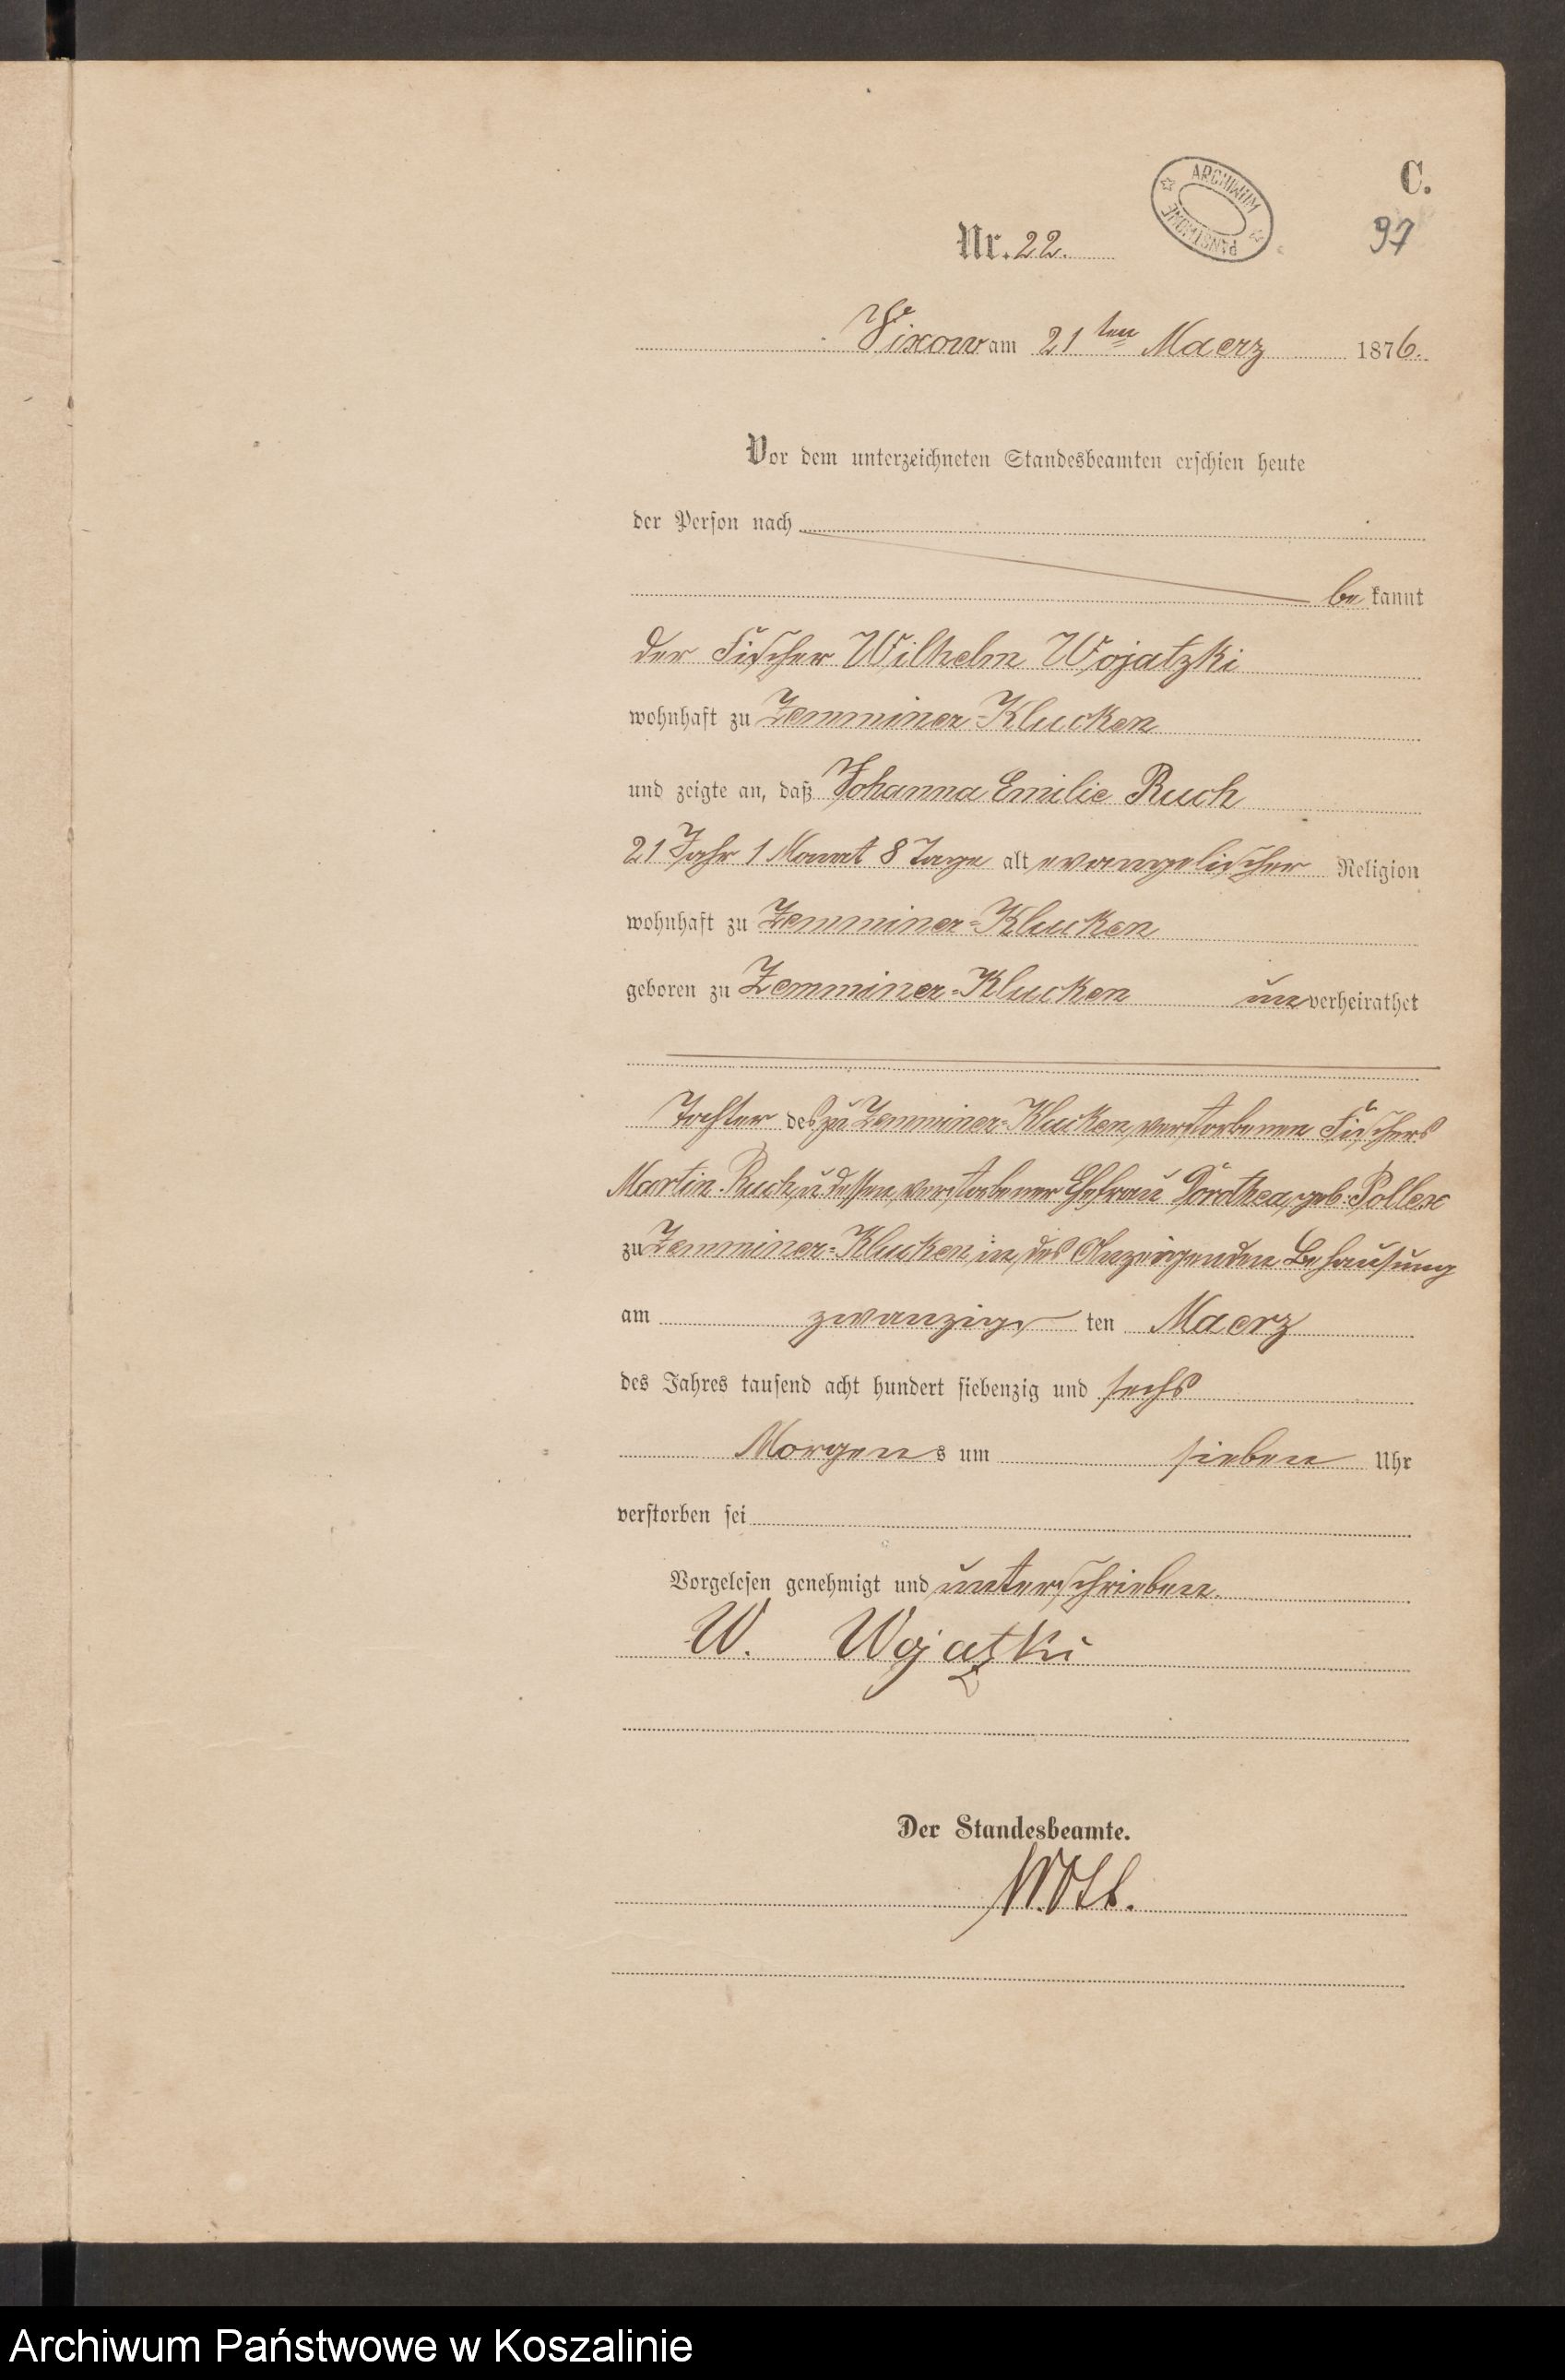 C.
ARCHIWUM PAŃSTWOWE
97
Nr. 22.
Vixow am 21ten Maerz 1876.
Vor dem unterzeichneten Standesbeamten erschien heute
der Person nach
be kannt
der Fischer Wilhelm Wojatzki
wohnhaft zu Zemminer-Klucken
und zeigte an, daß Johanna Emilie Ruch
21 Jahr 1 Monat 8 Tage alt evangelischer Religion
wohnhaft zu Zemminer-Klucken
geboren zu Zemminer-Klucken unverheirathet
Tochter des zu Zemminer-Klucken verstorbenen Fischers
Martin Ruch u dessen verstorbener Ehefrau Dorothea, geb. Pollex
zu Zemminer-Klucken, in des Anzeigenden Behausung
am zwanzigsten Maerz
des Jahres tausend acht hundert siebenzig und sechs
Morgens um sieben Uhr
verstorben sei
Vorgelesen genehmigt und unterschrieben.
W. Wojatzki
Der Standesbeamte.
Archiwum Państwowe w Koszalinie